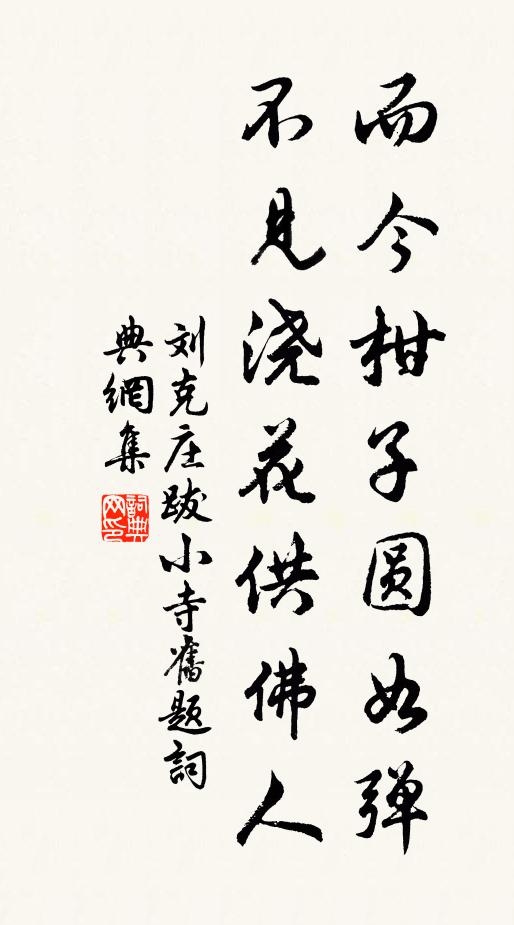 而今柑子圆如弹
不见浇花供佛人
刘克庄跋小寺旧题詞
典網集
詞典網印